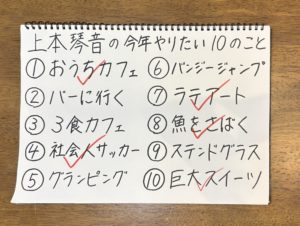 上本琴音の今年やりたい10のこと
①おうちカフェ
②バーに行く
③3食カフェ
④社会人サッカー
⑤グランピング
⑥バンジージャンプ
⑦ラテアート
⑧魚をさばく
⑨ステンドグラス
⑩巨大スイーツ